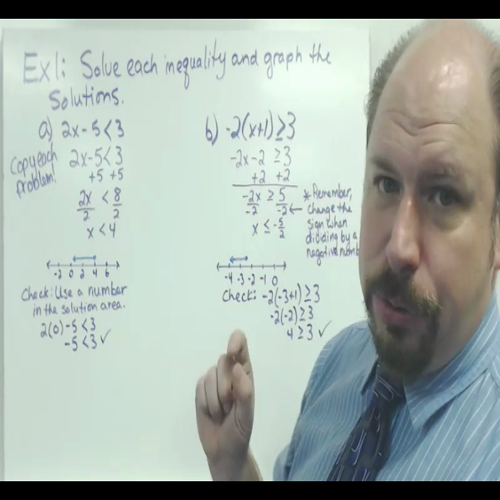 Ex1: Solve each inequality and graph the
Solutions.
a) 2x-5<3
Copy each
problem.
2x-5<3
+5 +5
2x < 8
2 2
x < 4
-2 0 2 4 6
Check: Use a number
in the solution area.
2(0)-5<3
-5<3 ✓
b) -2(x+1)≥3
-2x-2 ≥3
+2 +2
-2x ≥ 5
-2 -2
x ≤ -5/2
* Remember,
change the
sign when
dividing by a
negative number
-4 -3 -2 -1 0
Check: -2(-3+1)≥3
-2(-2)≥3
4≥3 ✓